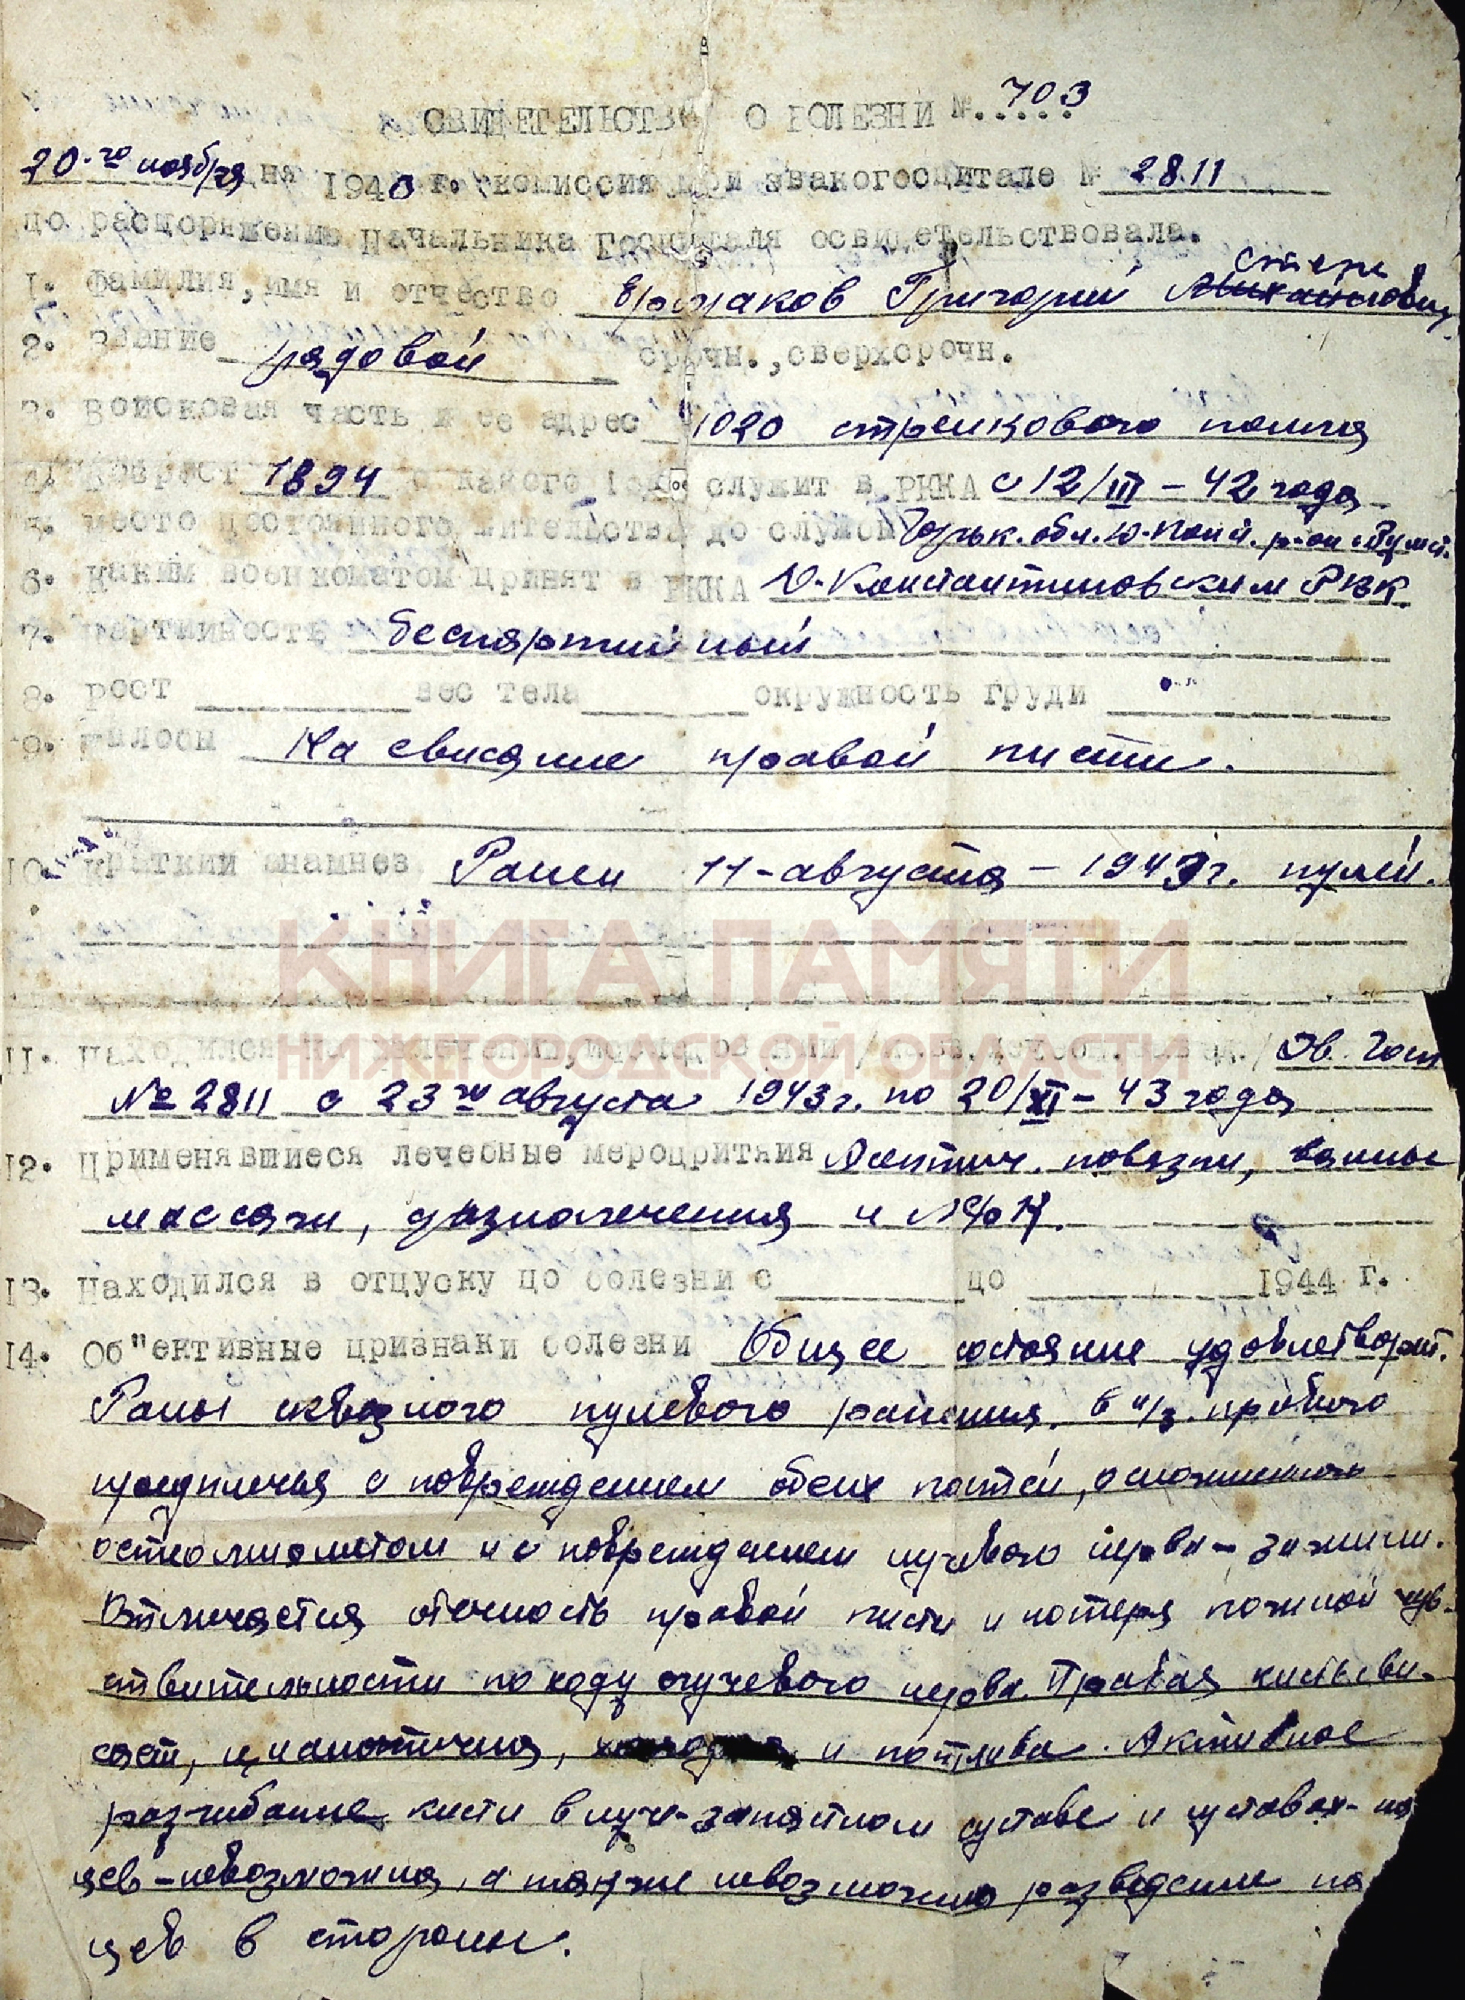 СВИДЕТЕЛЬСТВО О БОЛЕЗНИ №.703
20-го ноября дня 1943 г. комиссия при эвакогоспитале № 2811
по распоряжению Начальника Госпиталя освидетельствовала.
Степа
1. Фамилия, имя и отчество Ермаков Григорий Михайлович
2. Звание рядовой срочн., сверхсрочн.
3. Войсковая часть и ее адрес 1020 стрелкового полка
4. Возраст 1894 с какого года служит в РККА с 12/III – 42 года
5. Место постоянного жительства до службы Горьк. обл. Ю.
6. Каким военкоматом принят в РККА Ю-Константиновским РВК
7. Партийность беспартийный
8. Рост вес тела окружность груди
9. Жалобы На свисание правой кисти.
10. Краткий анамнез Ранен 11-августа – 1943 г. пулей.
КНИГА ПАМЯТИ
НИЖЕГОРОДСКОЙ ОБЛАСТИ
11. Находился на излечении, Эв. Госп
№ 2811 с 23го августа 1943 г. по 20/XI – 43 года
12. Применявшиеся лечебные мероприткия Асептич. повязки, ванны
массажи, физиолечения и ЛФК.
13. Находился в отпуску по болезни с по 1944 г.
14. Об"ективные признаки болезни Общее состояние удовлетворит.
Раны сквозного пулевого ранения в н/з. правого
предплечья с повреждением обеих костей, осложненного
остеомиелитом и с повреждением лучевого нерва – зажили.
Отмечается отечность правой кисти и потеря кожной чув-
ствительности по ходу лучевого нерва. Правая кисть сви-
сает, цианотична, и потлива. Активное
разгибание кисти в луче-запястном суставе и суставах
цев – невозможна, а также невозможно разведение па
цев в стороны.